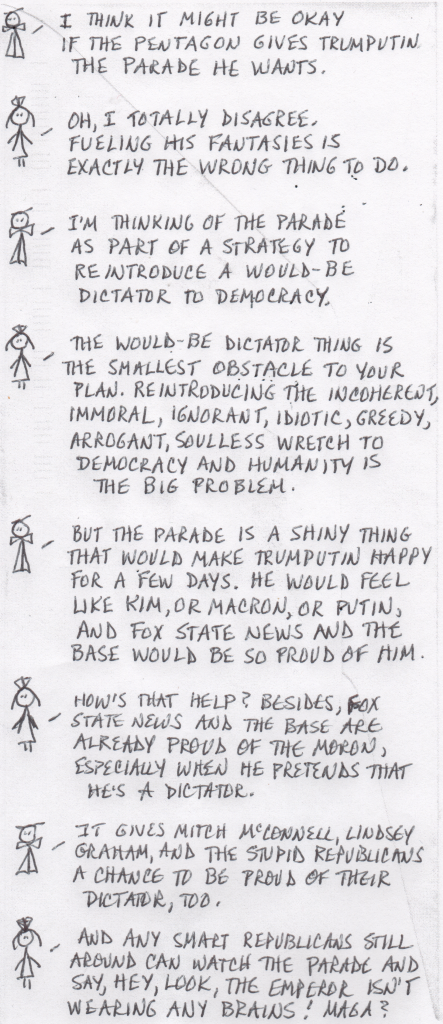 I THINK IT MIGHT BE OKAY
IF THE PENTAGON GIVES TRUMPUTIN
THE PARADE HE WANTS.
OH, I TOTALLY DISAGREE.
FUELING HIS FANTASIES IS
EXACTLY THE WRONG THING TO DO.
I'M THINKING OF THE PARADE
AS PART OF A STRATEGY TO
REINTRODUCE A WOULD-BE
DICTATOR TO DEMOCRACY.
THE WOULD-BE DICTATOR THING IS
THE SMALLEST OBSTACLE TO YOUR
PLAN. REINTRODUCING THE INCOHERENT,
IMMORAL, IGNORANT, IDIOTIC, GREEDY,
ARROGANT, SOULLESS WRETCH TO
DEMOCRACY AND HUMANITY IS
THE BIG PROBLEM.
BUT THE PARADE IS A SHINY THING
THAT WOULD MAKE TRUMPUTIN HAPPY
FOR A FEW DAYS. HE WOULD FEEL
LIKE KIM, OR MACRON, OR PUTIN,
AND FOX STATE NEWS AND THE
BASE WOULD BE SO PROUD OF HIM.
HOW'S THAT HELP? BESIDES, FOX
STATE NEWS AND THE BASE ARE
ALREADY PROUD OF THE MORON,
ESPECIALLY WHEN HE PRETENDS THAT
HE'S A DICTATOR.
IT GIVES MITCH McCONNELL, LINDSEY
GRAHAM, AND THE STUPID REPUBLICANS
A CHANCE TO BE PROUD OF THEIR
DICTATOR, TOO.
AND ANY SMART REPUBLICANS STILL
AROUND CAN WATCH THE PARADE AND
SAY, HEY, LOOK, THE EMPEROR ISN'T
WEARING ANY BRAINS! MAGA?